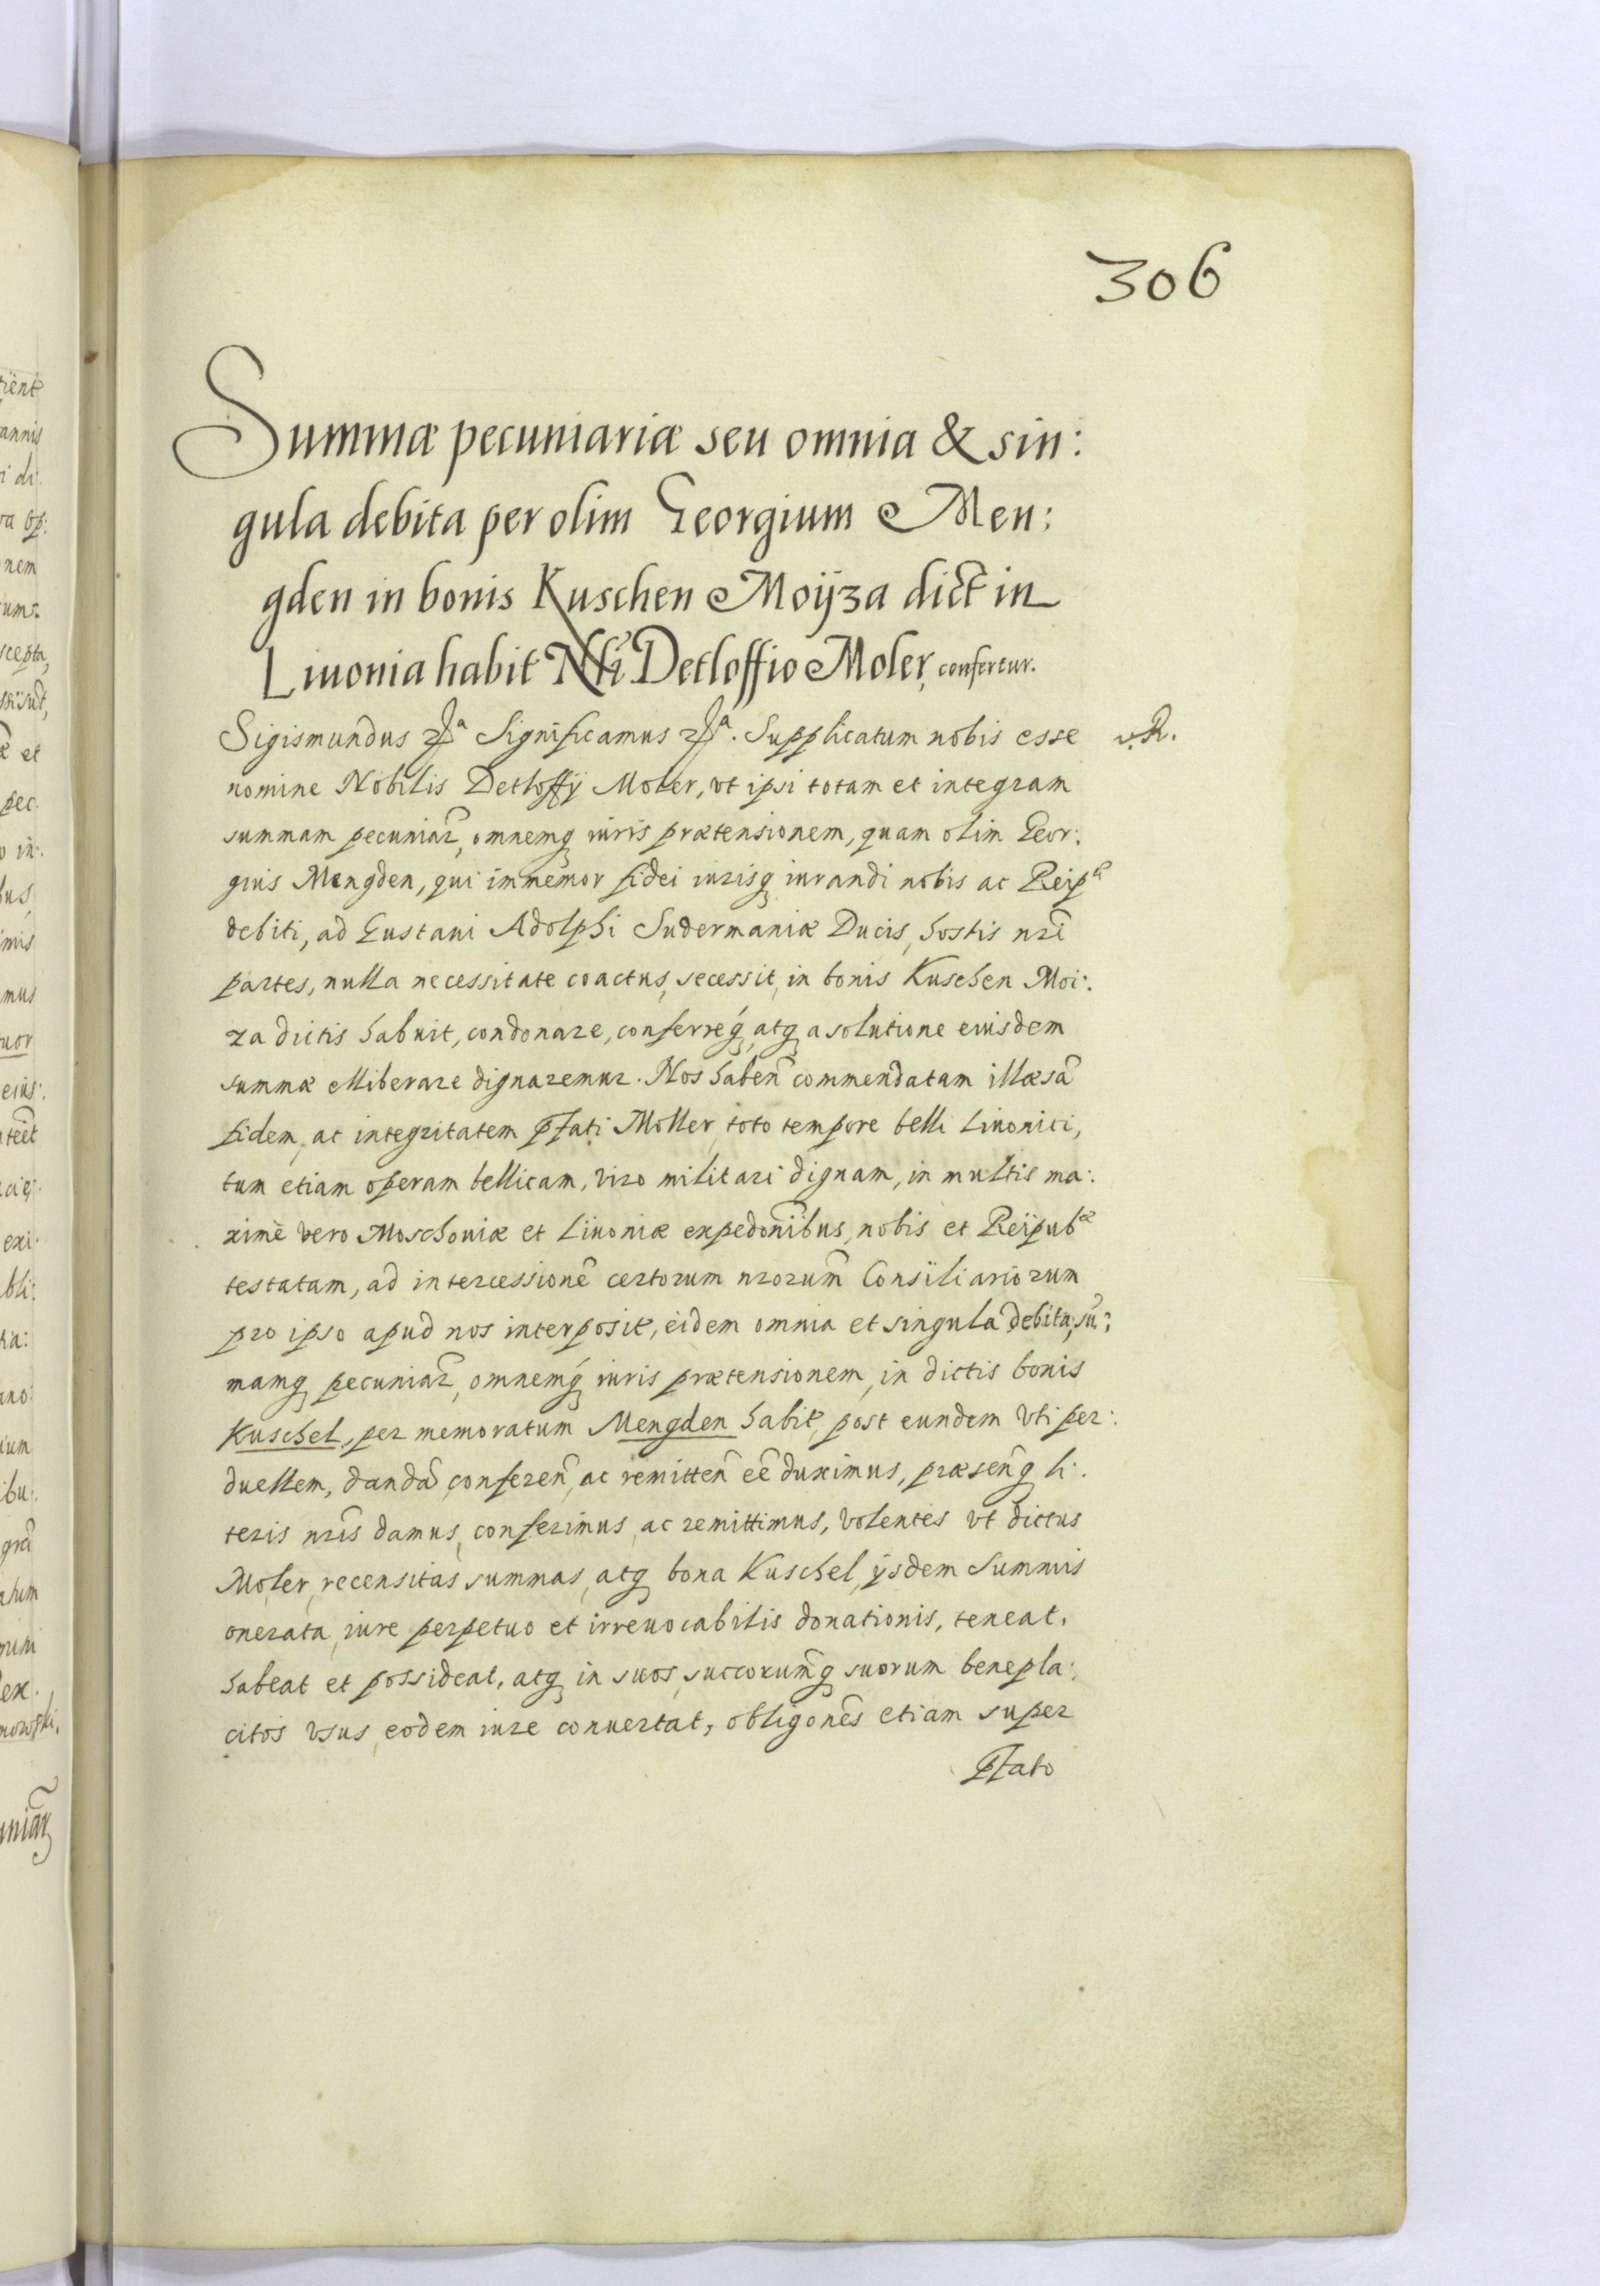 306
Summæ pecuniariæ seu omnia & sin:
gula debita per olim Georgium Men:
gden in bonis Kuschen Moÿza dict in
Liuonia habit Nli Detloffio Moler, confertur.
Sigismundus Significamus Supplicatum nobis esse v. R.
nomine Nobilis Detloffÿ Moler, vt ipsi totam et integram
summam pecuniar, omnemq iuris prætensionem, quam olim Geor:
gius Mengden, qui immemor fidei iurisq iurandi nobis ac Reip
debiti, ad Gustaui Adolphi Sudermaniæ Ducis, hostis nri
partes, nulla necessitate coactus, secessit, in bonis Kuschen Moi:
za dictis habuit, condonare, conferreq, atq a solutione eiusdem
summæ elliberare dignaremur. Nos haben commendatam illæsa
fidem, ac integritatem pfati Moller, toto tempore belli Liuonici,
tum etiam operam bellicam, viro militari dignam, in multis ma:
ximè vero Moschouiæ et Liuoniæ expedonibus, nobis et Reipubæ
testatam, ad intercessione certorum nrorum Consiliariorum
pro ipso apud nos interposit, eidem omnia et singula debita, su:
mamq pecuniar, omnemq iuris prætensionem, in dictis bonis
Kuschel, per memoratum Mengden habit, post eundem vti per:
duellem, danda, conferen, ac remitten ee duximus, præsenq li:
teris nris damus, conferimus, ac remittimus, volentes vt dictus
Moler, recensitas summas, atq bona Kuschel, ÿsdem Summis
onerata, iure perpetuo et irreuocabilis donationis, teneat,
habeat et possideat, atq in suos, succorumq suorum benepla:
citos vsus, eodem iure conuertat, obligones etiam super
pfato